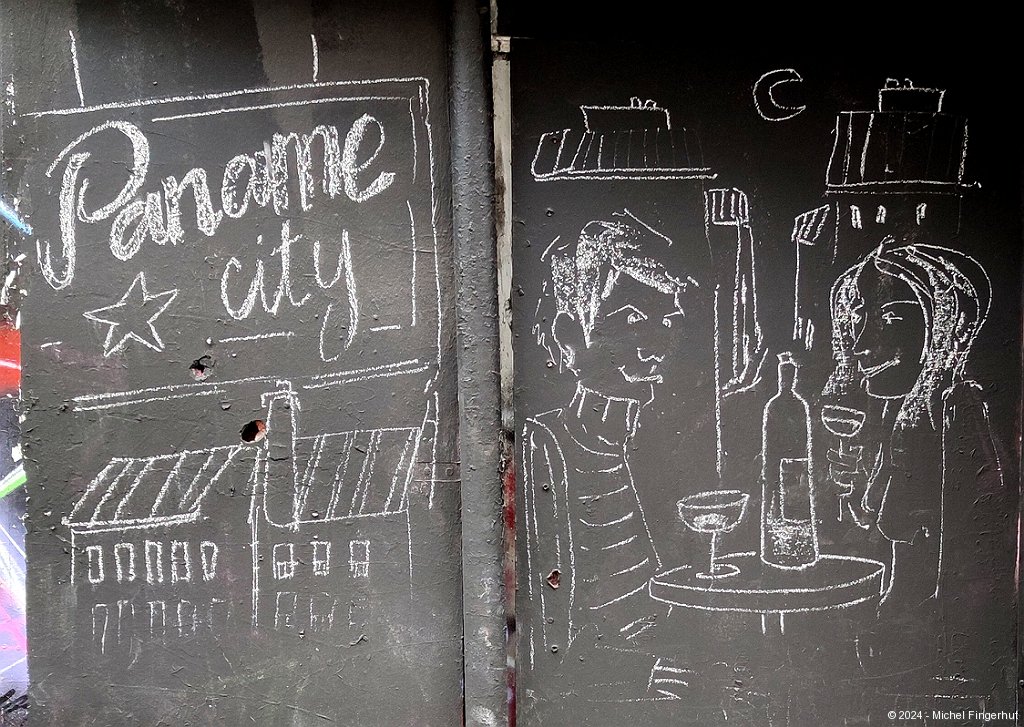 Paname
city
© 2024 - Michel Fingerhut